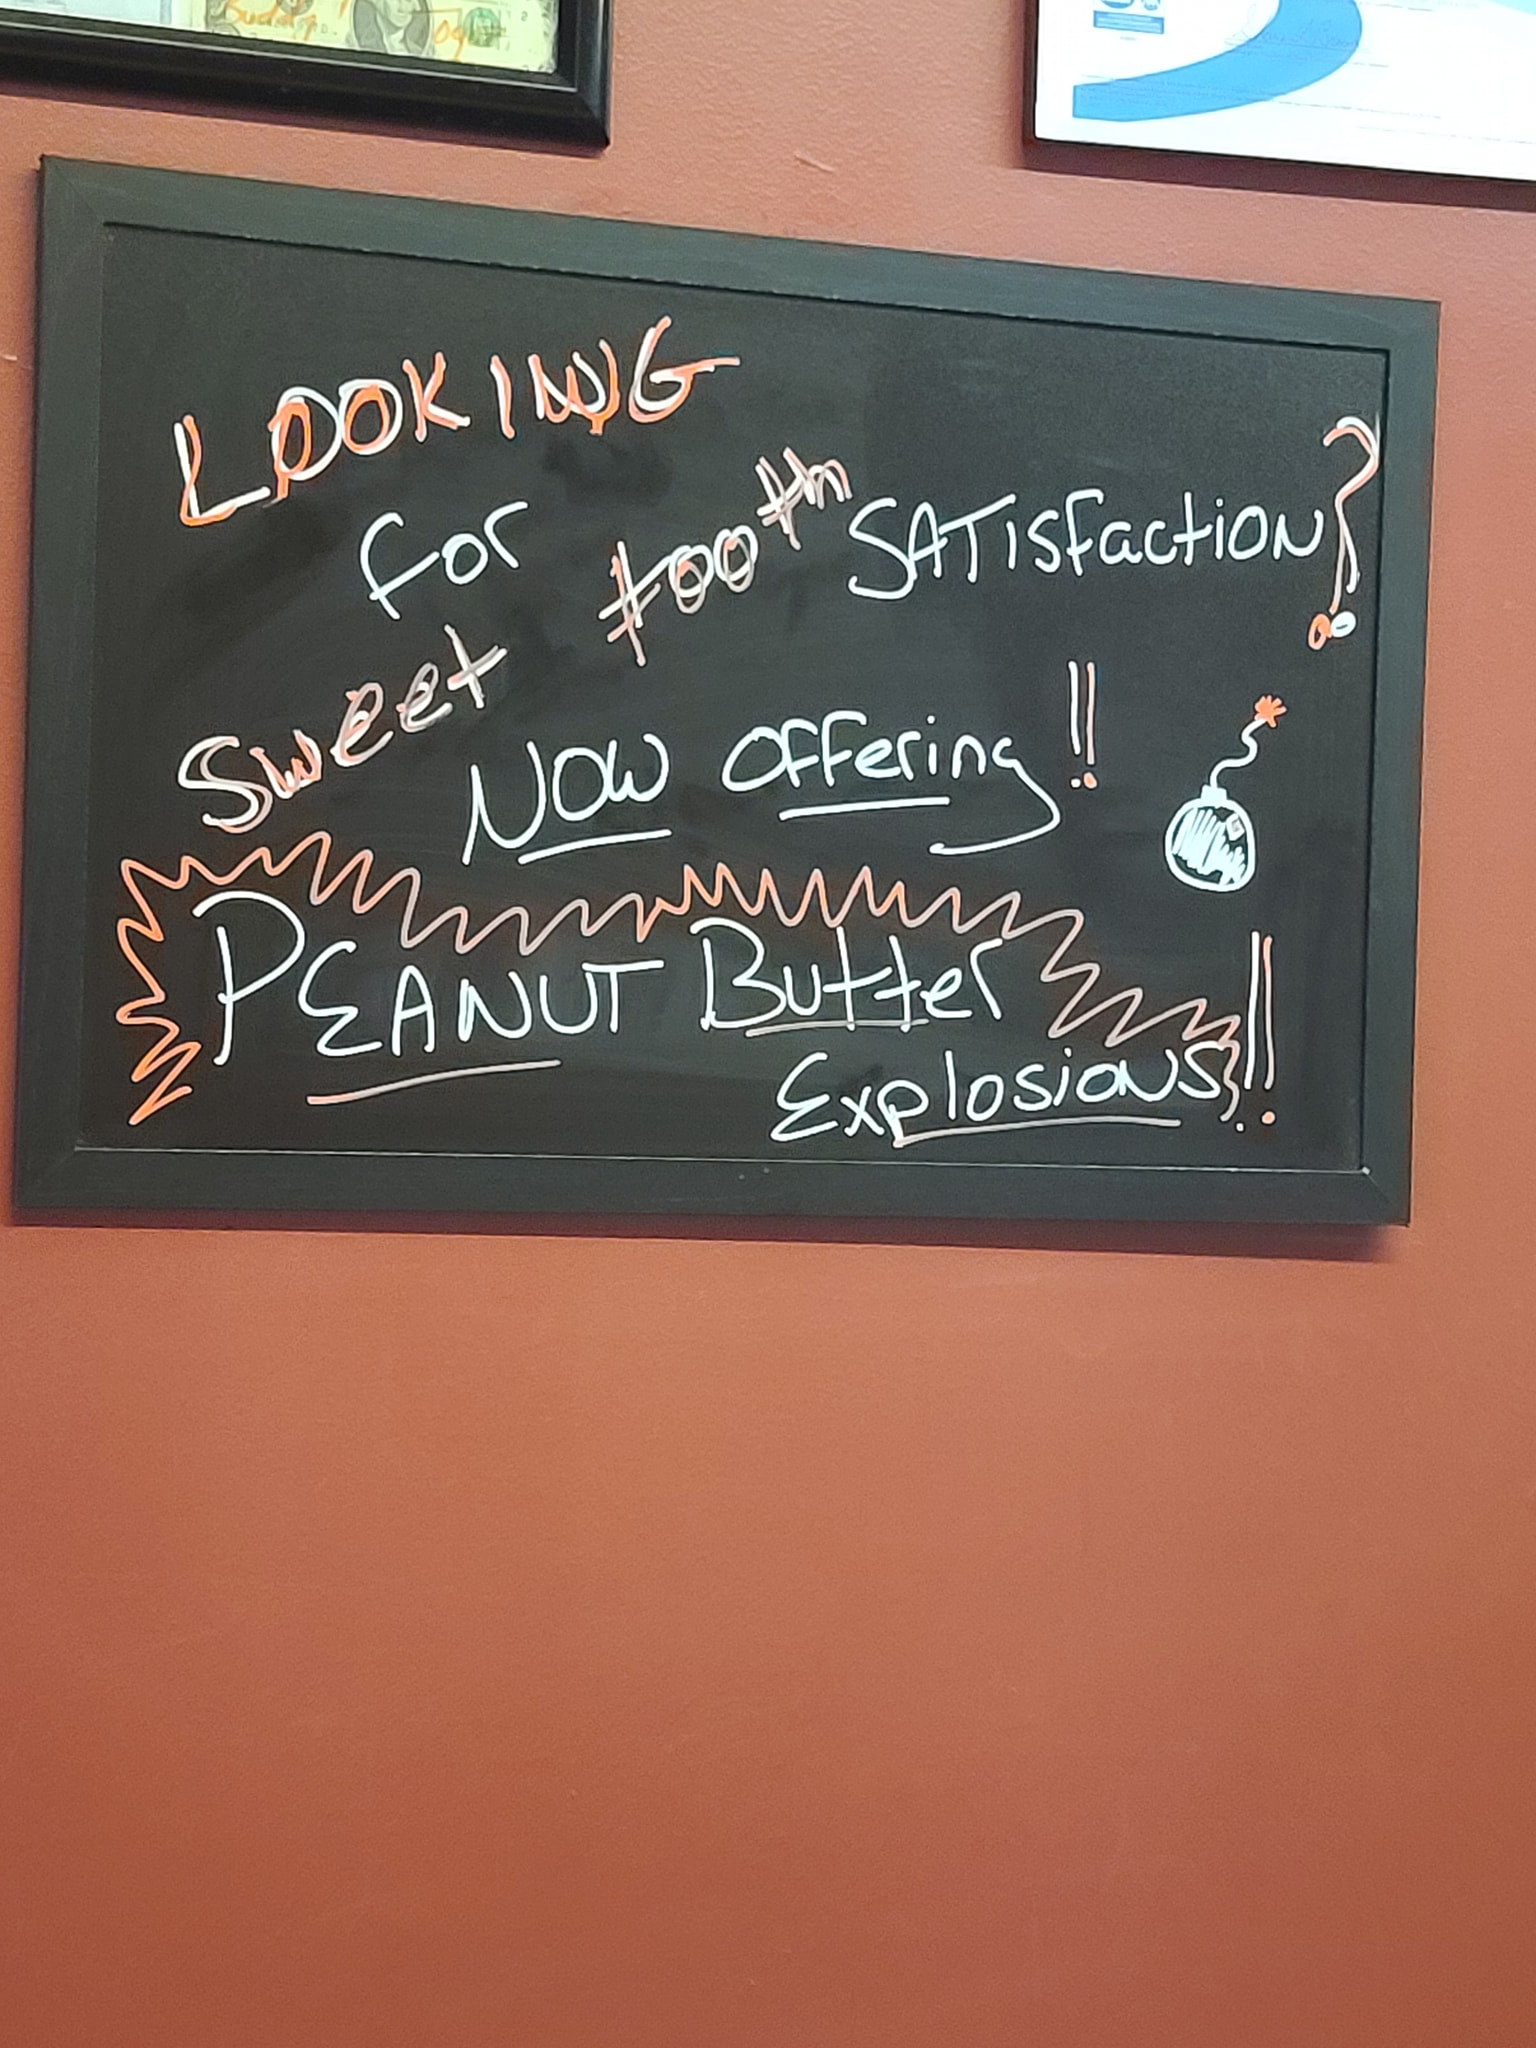 Buddy!
LOOKING
for
Sweet tooth SATISfactION?
NOW Offering!!
PEANUT Butter
Explosions!!